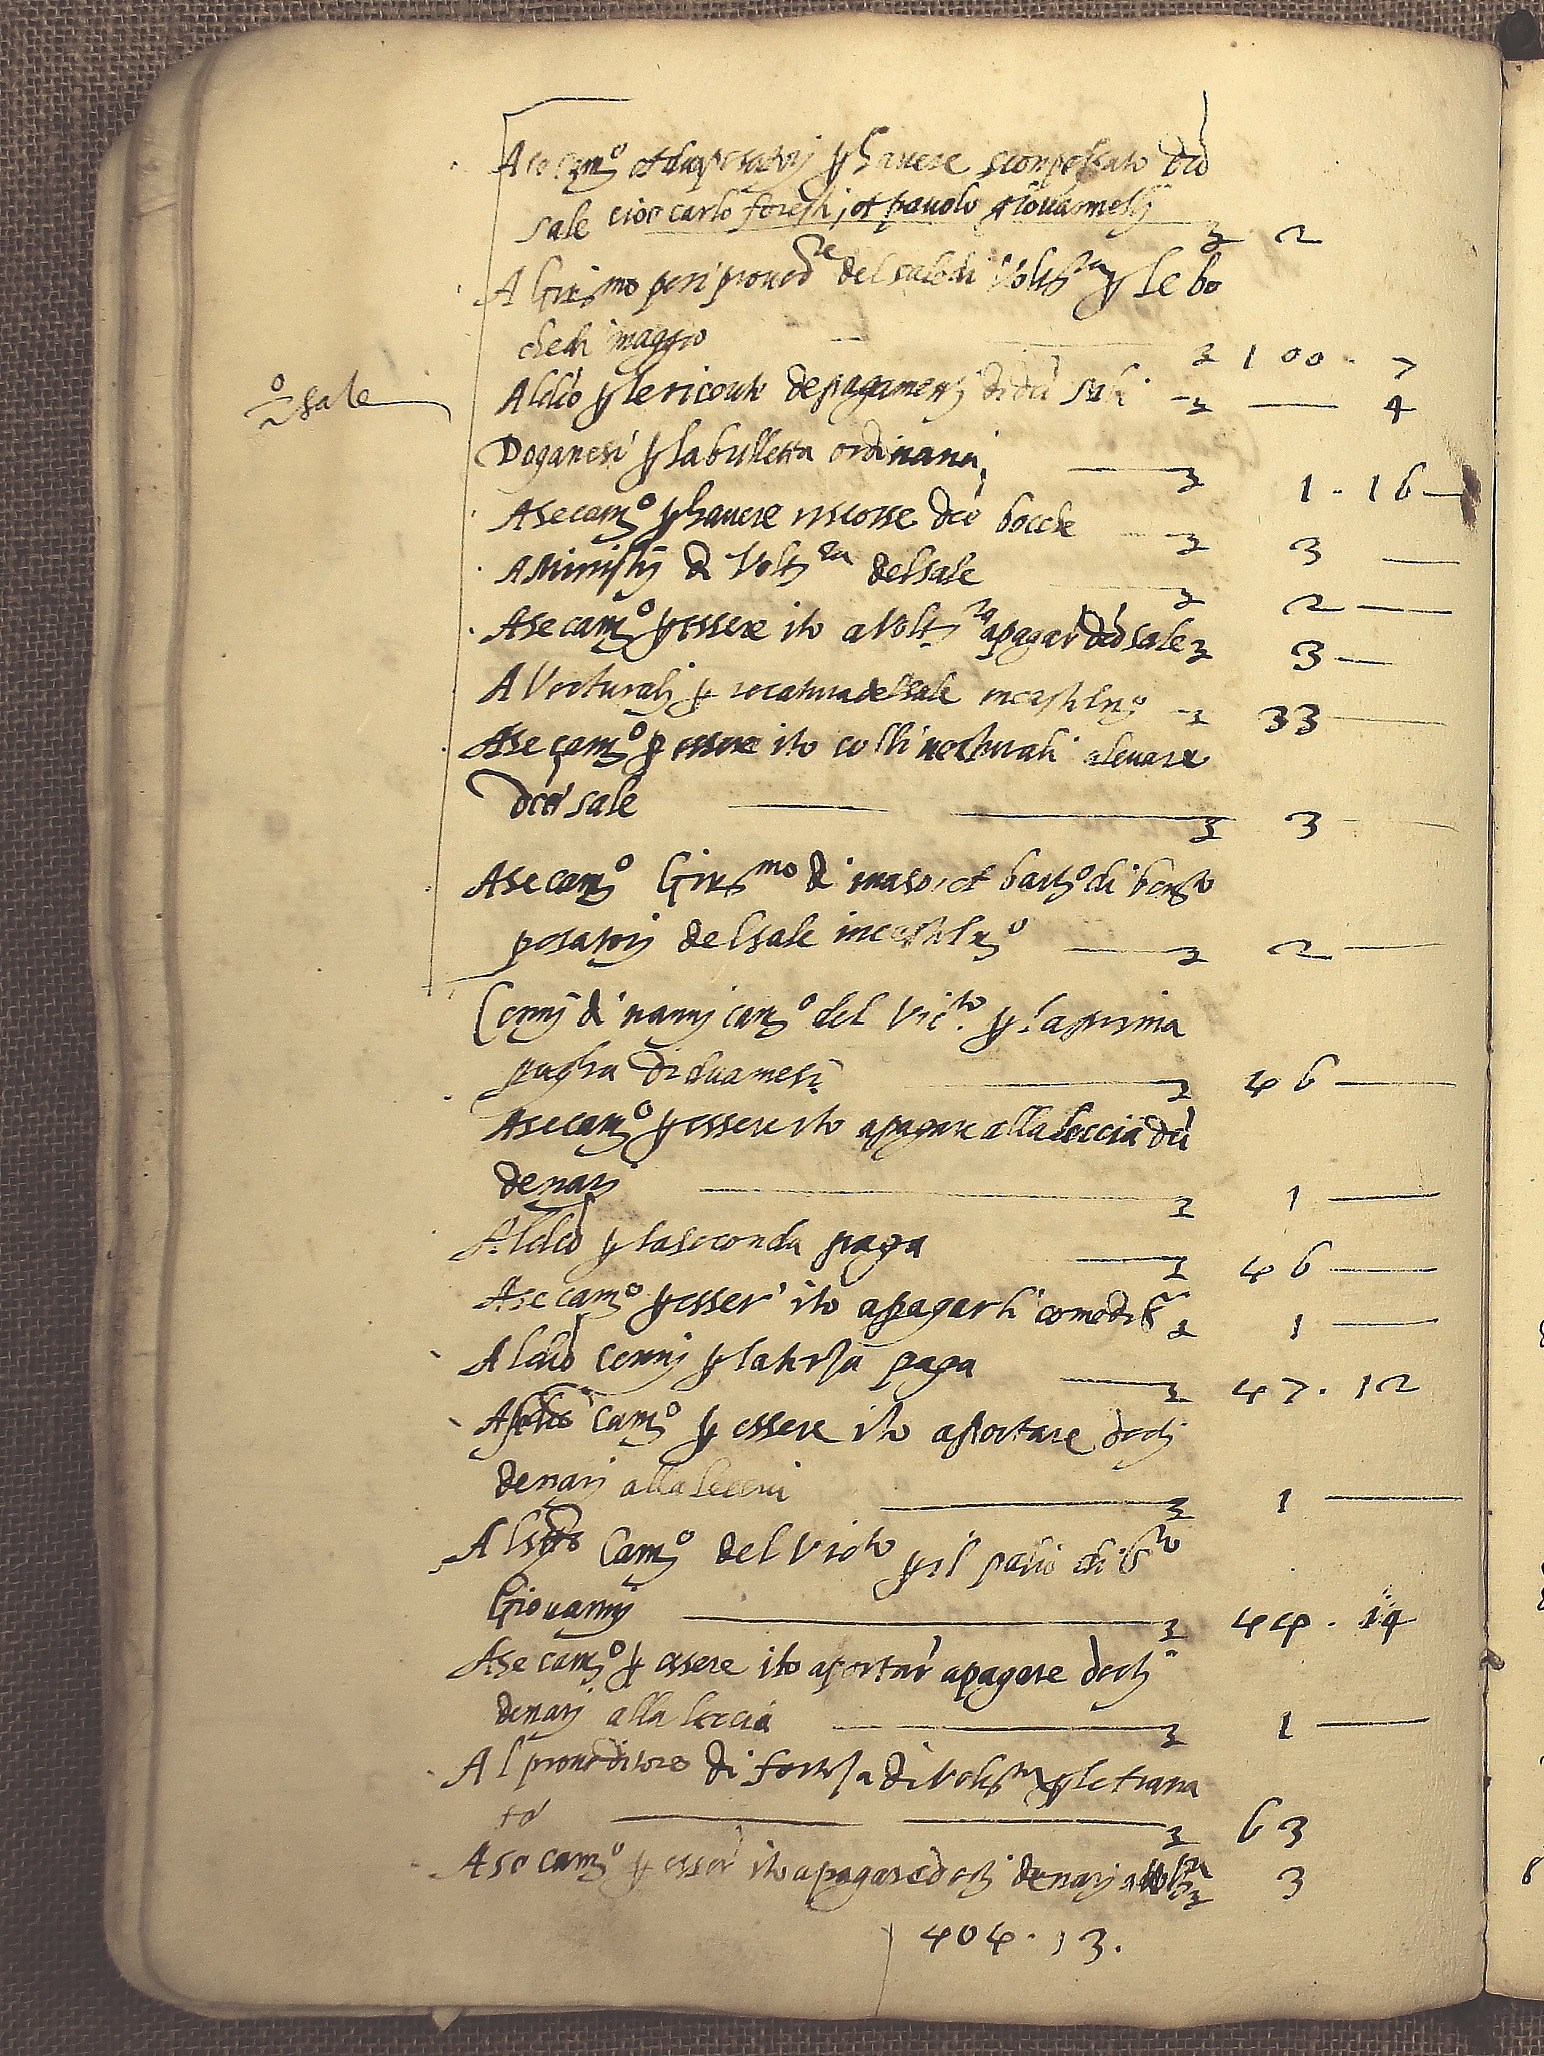 A se cam.º et duo posatorj p havere scompessato dco
sale cioe carlo foresti, et pavolo giovannellj ₤ 2
A Girmo peri proved.re del sale di Volt.ra p le bo
che di maggio ₤ 100 . 7
Al dco p le ricevute de pagamentj di dci sali ₤ — 4
Doganesi p la bulletta ordinaria ₤ 1 . 16 —
º sale
A se cam.º p havere riscosse dce bocche ₤ 3 —
A Ministrj di Volt.ra del sale ₤ 2 —
A se cam.º p essere ito a Volt.ra a pagar dco sale ₤ 3 —
A Vetturali p recatura del sale in castel n.º ₤ 33 —
A se cam.º p essere ito colli vetturali a levare
dco sale ₤ 3 —
A se cam.º Gir.mo di maso, et bart.º di ben.to
posatorj del sale in castel n.º ₤ 2 —
Cennj di nannj cam.º del Vic.to p la prima
pagha di dua mesi ₤ 46 —
A se cam.º p essere ito a pagare alla leccia dci
denarj ₤ 1 —
Al dco p la seconda paga ₤ 46 —
A se cam.º p esser' ito a pagarli come di s.a ₤ 1 —
Al dco Cennj p la terza paga ₤ 47 . 12
A cam.º p essere ito a portare dectj
denarj alla leccia ₤ 1 —
Al Cam.º del Victo p il palio di S.to
Giovannj ₤ 44 . 14
A se cam.º p essere ito a portar' a pagare dectj
denarj alla leccia ₤ 1 —
Al proveditore di forteza di Volt.ra p le trana
te ₤ 63
A se cam.º p esser' ito a pagare dectj denarj a Volt.ra ₤ 3
404 . 13 .